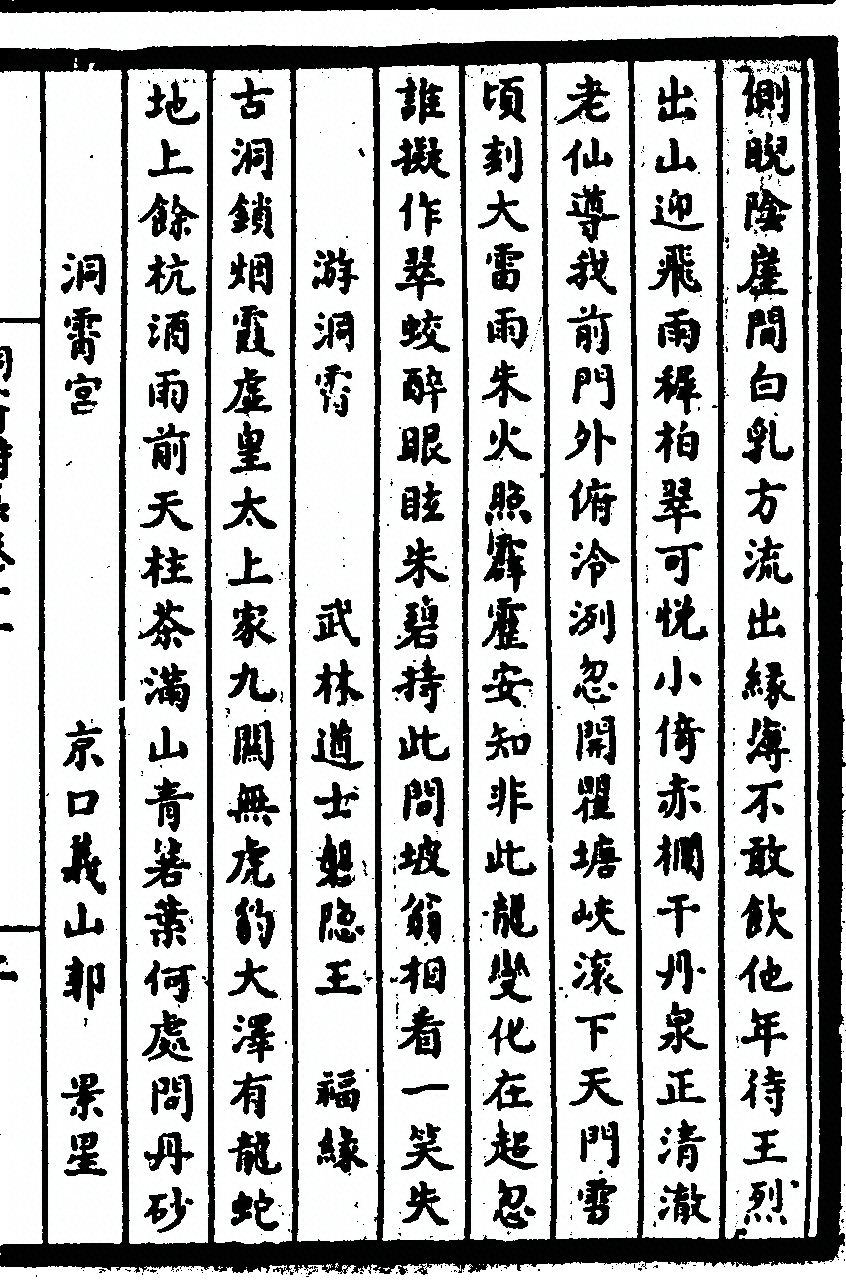 側睨陰崖間白乳方流出緣薄不敢飲他年待王烈
出山迎飛雨稺柏翠可悅小倚赤欄干丹泉正清澈
老仙導我前門外俯泠冽忽開瞿塘峽滚下天門雪
頃刻大雷雨朱火照霹靂安知非此龍變化在超忽
誰擬作翠蛟醉眼眩朱碧持此問坡翁相看一笑失
游洞霄 武林道士盤隐王 福緣
古洞鎖烟霞虛皇太上家九關無虎豹大澤有龍蛇
地上餘杭酒雨前天柱茶滿山青箬葉何處問丹砂
洞霄宮 京口義山郭 景星